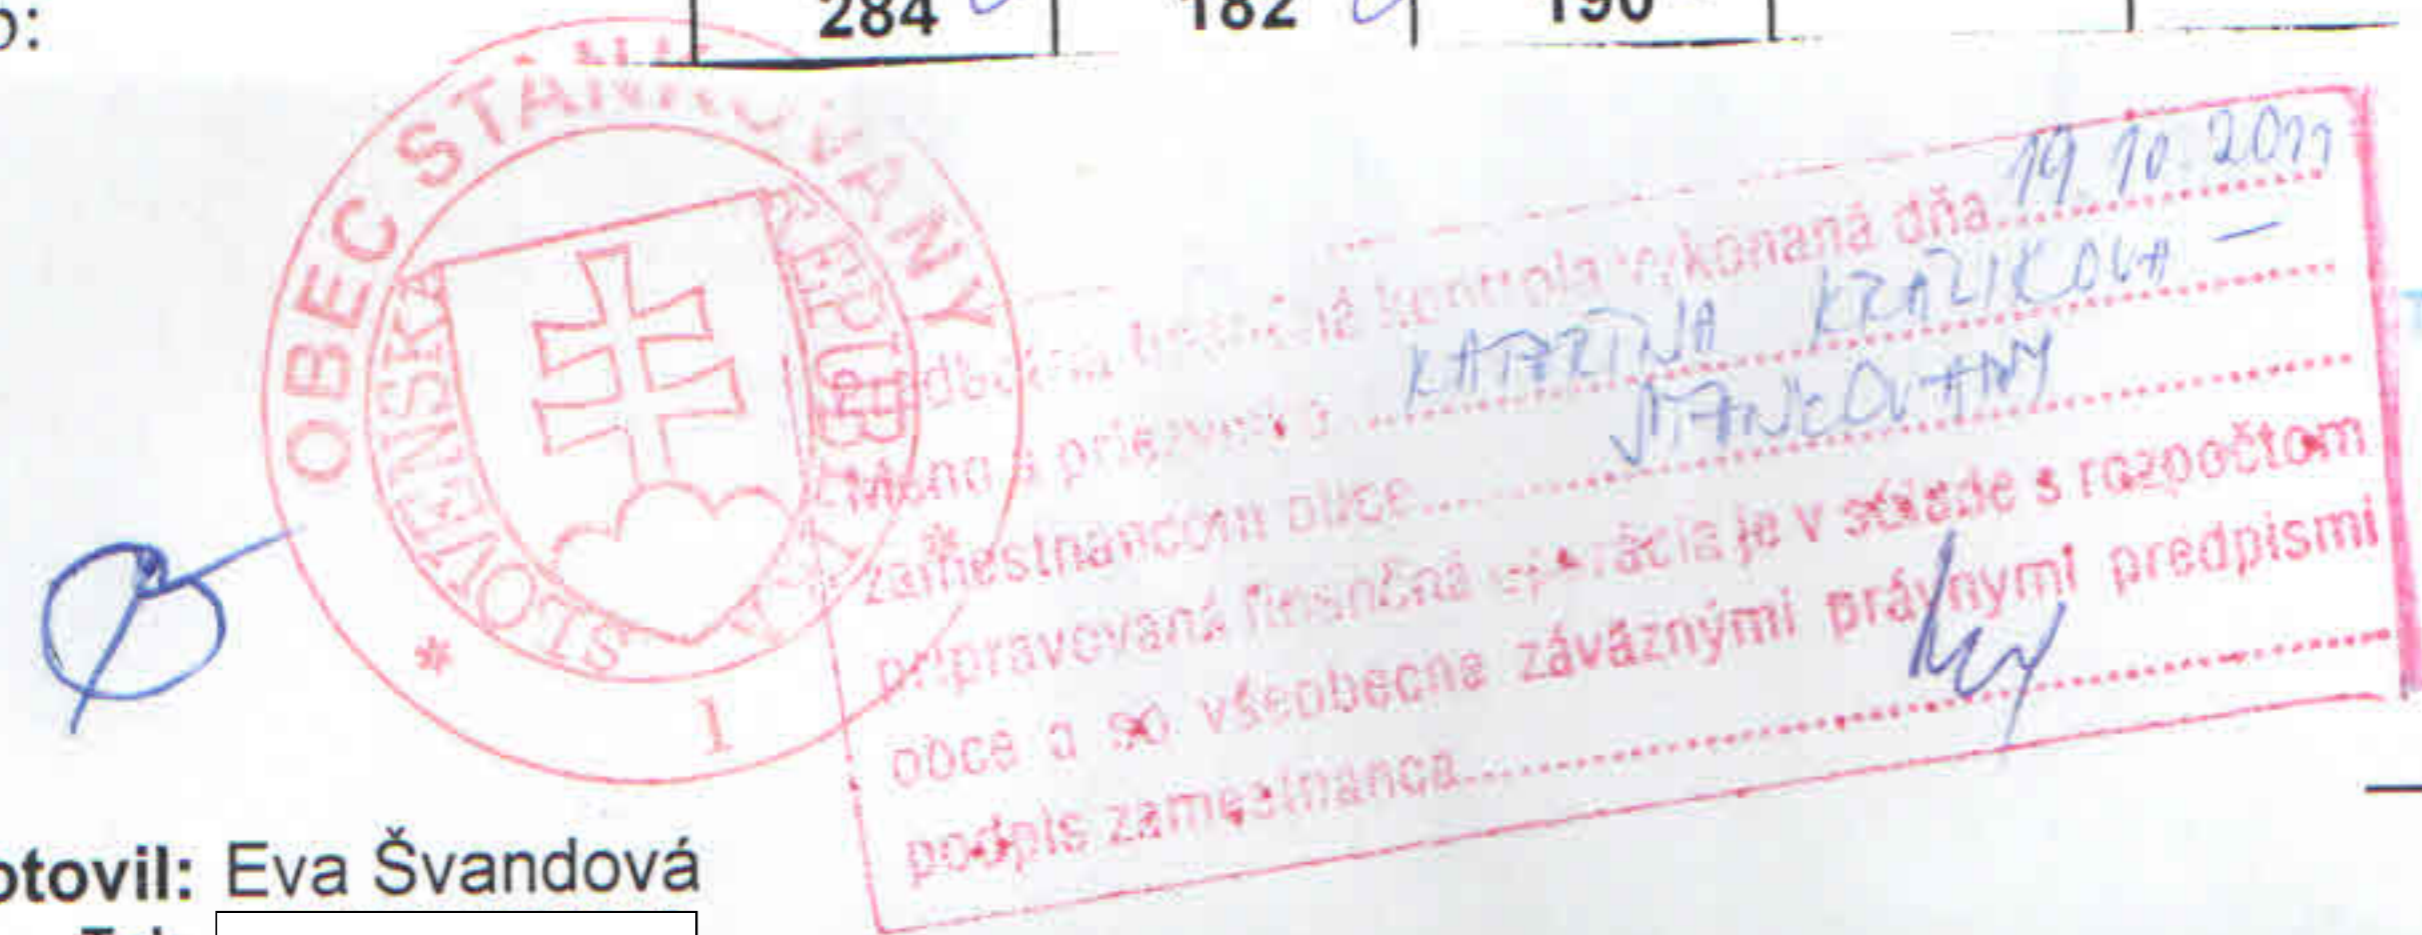 284 182 190
OBEC STANKOVANY
SLOVENSKÁ REPUBLIKA
1
Predbežná finančná kontrola vykonaná dňa 19. 10. 2011
Meno a priezvisko KATARÍNA KRÁLIKOVÁ –
zamestnancom obce STANKOVANY
pripravovaná finančná operácia je v súlade s rozpočtom
obce a so všeobecne záväznými právnymi predpismi
podpis zamestnanca
otovil: Eva Švandová